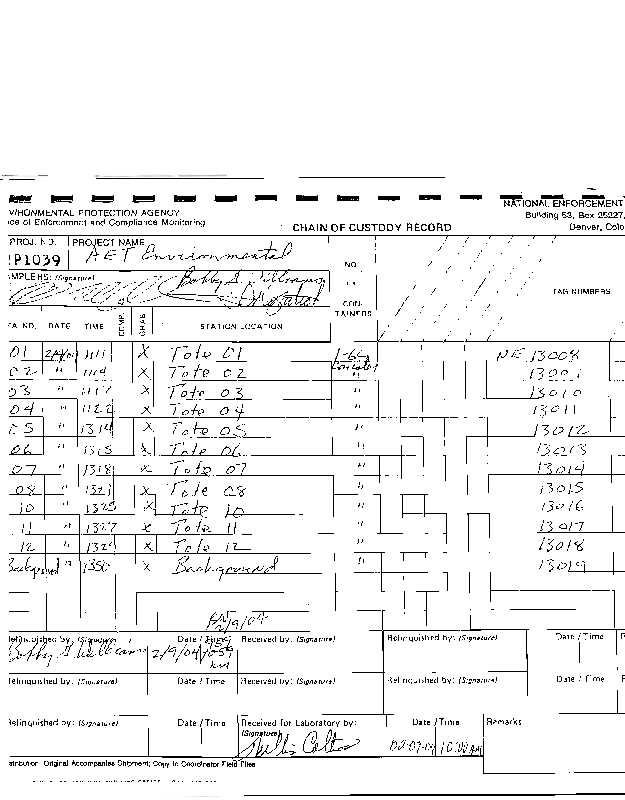 NATIONAL ENFORCEMENT
VIRONMENTAL PROTECTION AGENCY
ce of Enforcement and Compliance Monitoring
Building 53, Box 25227,
CHAIN OF CUSTODY RECORD
Denver, Colo
PROJ. NO. PROJECT NAME
P1039 AET Environmental
NO.
MPLERS: (Signature)
CON-
TAINERS
TAG NUMBERS
TA. NO. DATE TIME COMP. GRAB STATION LOCATION
01 1111 X Tote 01 NE 13008
02 " 1114 X Tote 02
03 " 1117 X Tote 03 " 13010
04 " 1122 X Tote 04 " 13011
05 " 1314 X Tote 05 " 13012
06 " 1315 X Tote 06 " 13013
07 " 1318 X Tote 07 " 13014
08 " 1321 X Tote 08 " 13015
10 " 1325 X Tote 10 " 13016
11 " 1327 X Tote 11 " 13017
12 " 1329 X Tote 12 " 13018
Background " 1350 X Background " 13019
2/9/04
Relinquished by: (Signature) Date / Time Received by: (Signature) Relinquished by: (Signature) Date / Time
Bobby G Williams 2/9/04
Relinquished by: (Signature) Date / Time Received by: (Signature) Relinquished by: (Signature) Date / Time
Relinquished by: (Signature) Date / Time Received for Laboratory by: Date / Time Remarks
(Signature)
10:00 AM
stribution: Original Accompanies Shipment; Copy to Coordinator Field Files